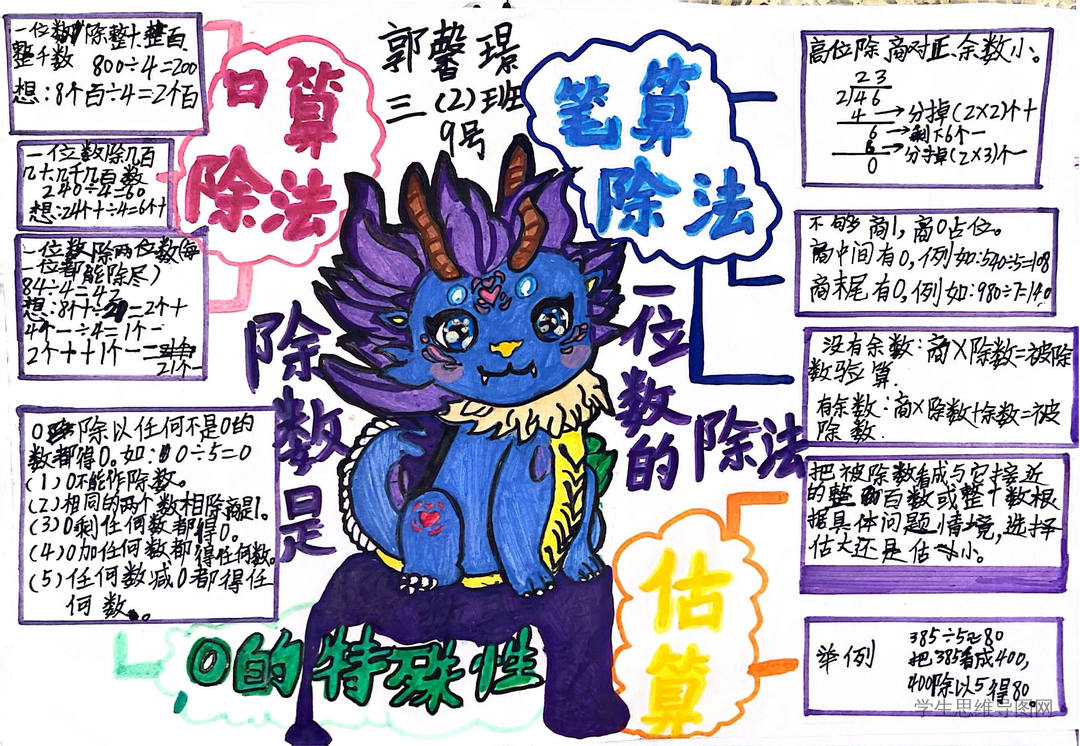 郭馨璟
三(2)班
9号
口算
除法
一位数除整十整百
整千数 800÷4=200
想:8个百÷4=2个百
一位数除几百
几十几千几百数
240÷4=60
想:24个十÷4=6个十
一位数除两位数(每
一位都能除尽)
84÷4=21
想:8个十÷4=2个十
4个一÷4=1个一
2个十+1个一=
21个一
0除以任何不是0的
数都得0。如:0÷5=0
(1)0不能作除数。
(2)相同的两个数相除商是1。
(3)0剩任何数都得0。
(4)0加任何数都得任何数。
(5)任何数减0都得任
何数。
0的特殊性
除数是
一位数的
除法
笔算
除法
高位除,商对正,余数小。
23
2)46
4→分掉(2×2)个十
6→剩下6个一
6→分掉(2×3)个一
0
不够商1,商0占位。
商中间有0,例如:540÷5=108
商末尾有0,例如:980÷7=140
没有余数:商×除数=被除
数验算.
有余数:商×除数+余数=被
除数.
估
算
把被除数看成与它接近
的整百数或整十数根
据具体问题情境,选择
估大还是估小。
举例
385÷5≈80
把385看成400,
400除以5得80。
学生思维导图网